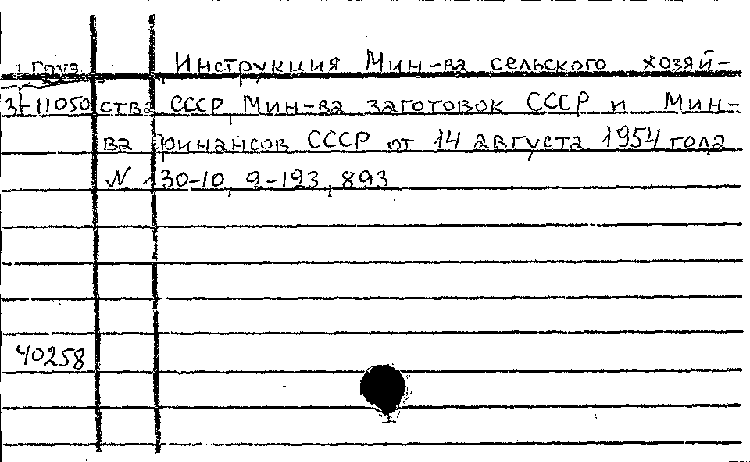 1 Груз. Инструкция Мин-ва сельского хозяй-
31-11050 ства СССР, Мин-ва заготовок СССР и Мин-
ва финансов СССР от 14 августа 1954 года
N 130-10, 9-193, 893
40258